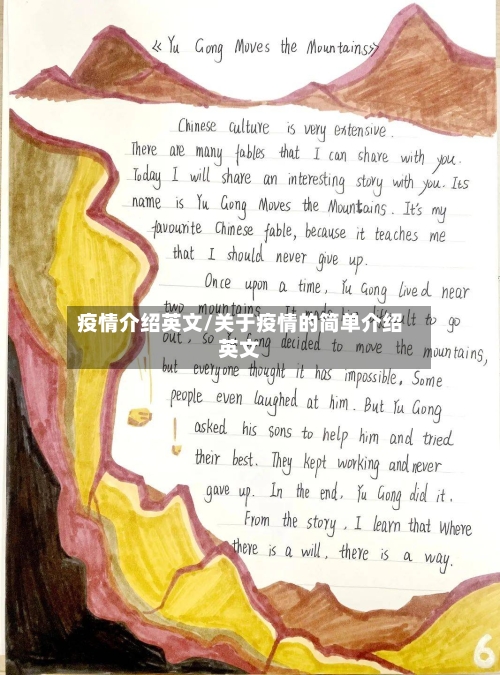 《Yu Gong Moves the Mountains》
Chinese culture is very extensive.
There are many fables that I can share with you.
Today I will share an interesting story with you. Its
name is Yu Gong Moves the Mountains. It's my
favourite Chinese fable, because it teaches me
that I should never give up.
Once upon a time, Yu Gong lived near
two mountains. It made to go
疫情介绍英文/关于疫情的简单介绍
英文
out, so decided to move the mountains,
but everyone thought it has impossible. Some
people even laughed at him. But Yu Gong
asked his sons to help him and tried
their best. They kept working and never
gave up. In the end, Yu Gong did it.
From the story, I learn that where
there is a will, there is a way.
6